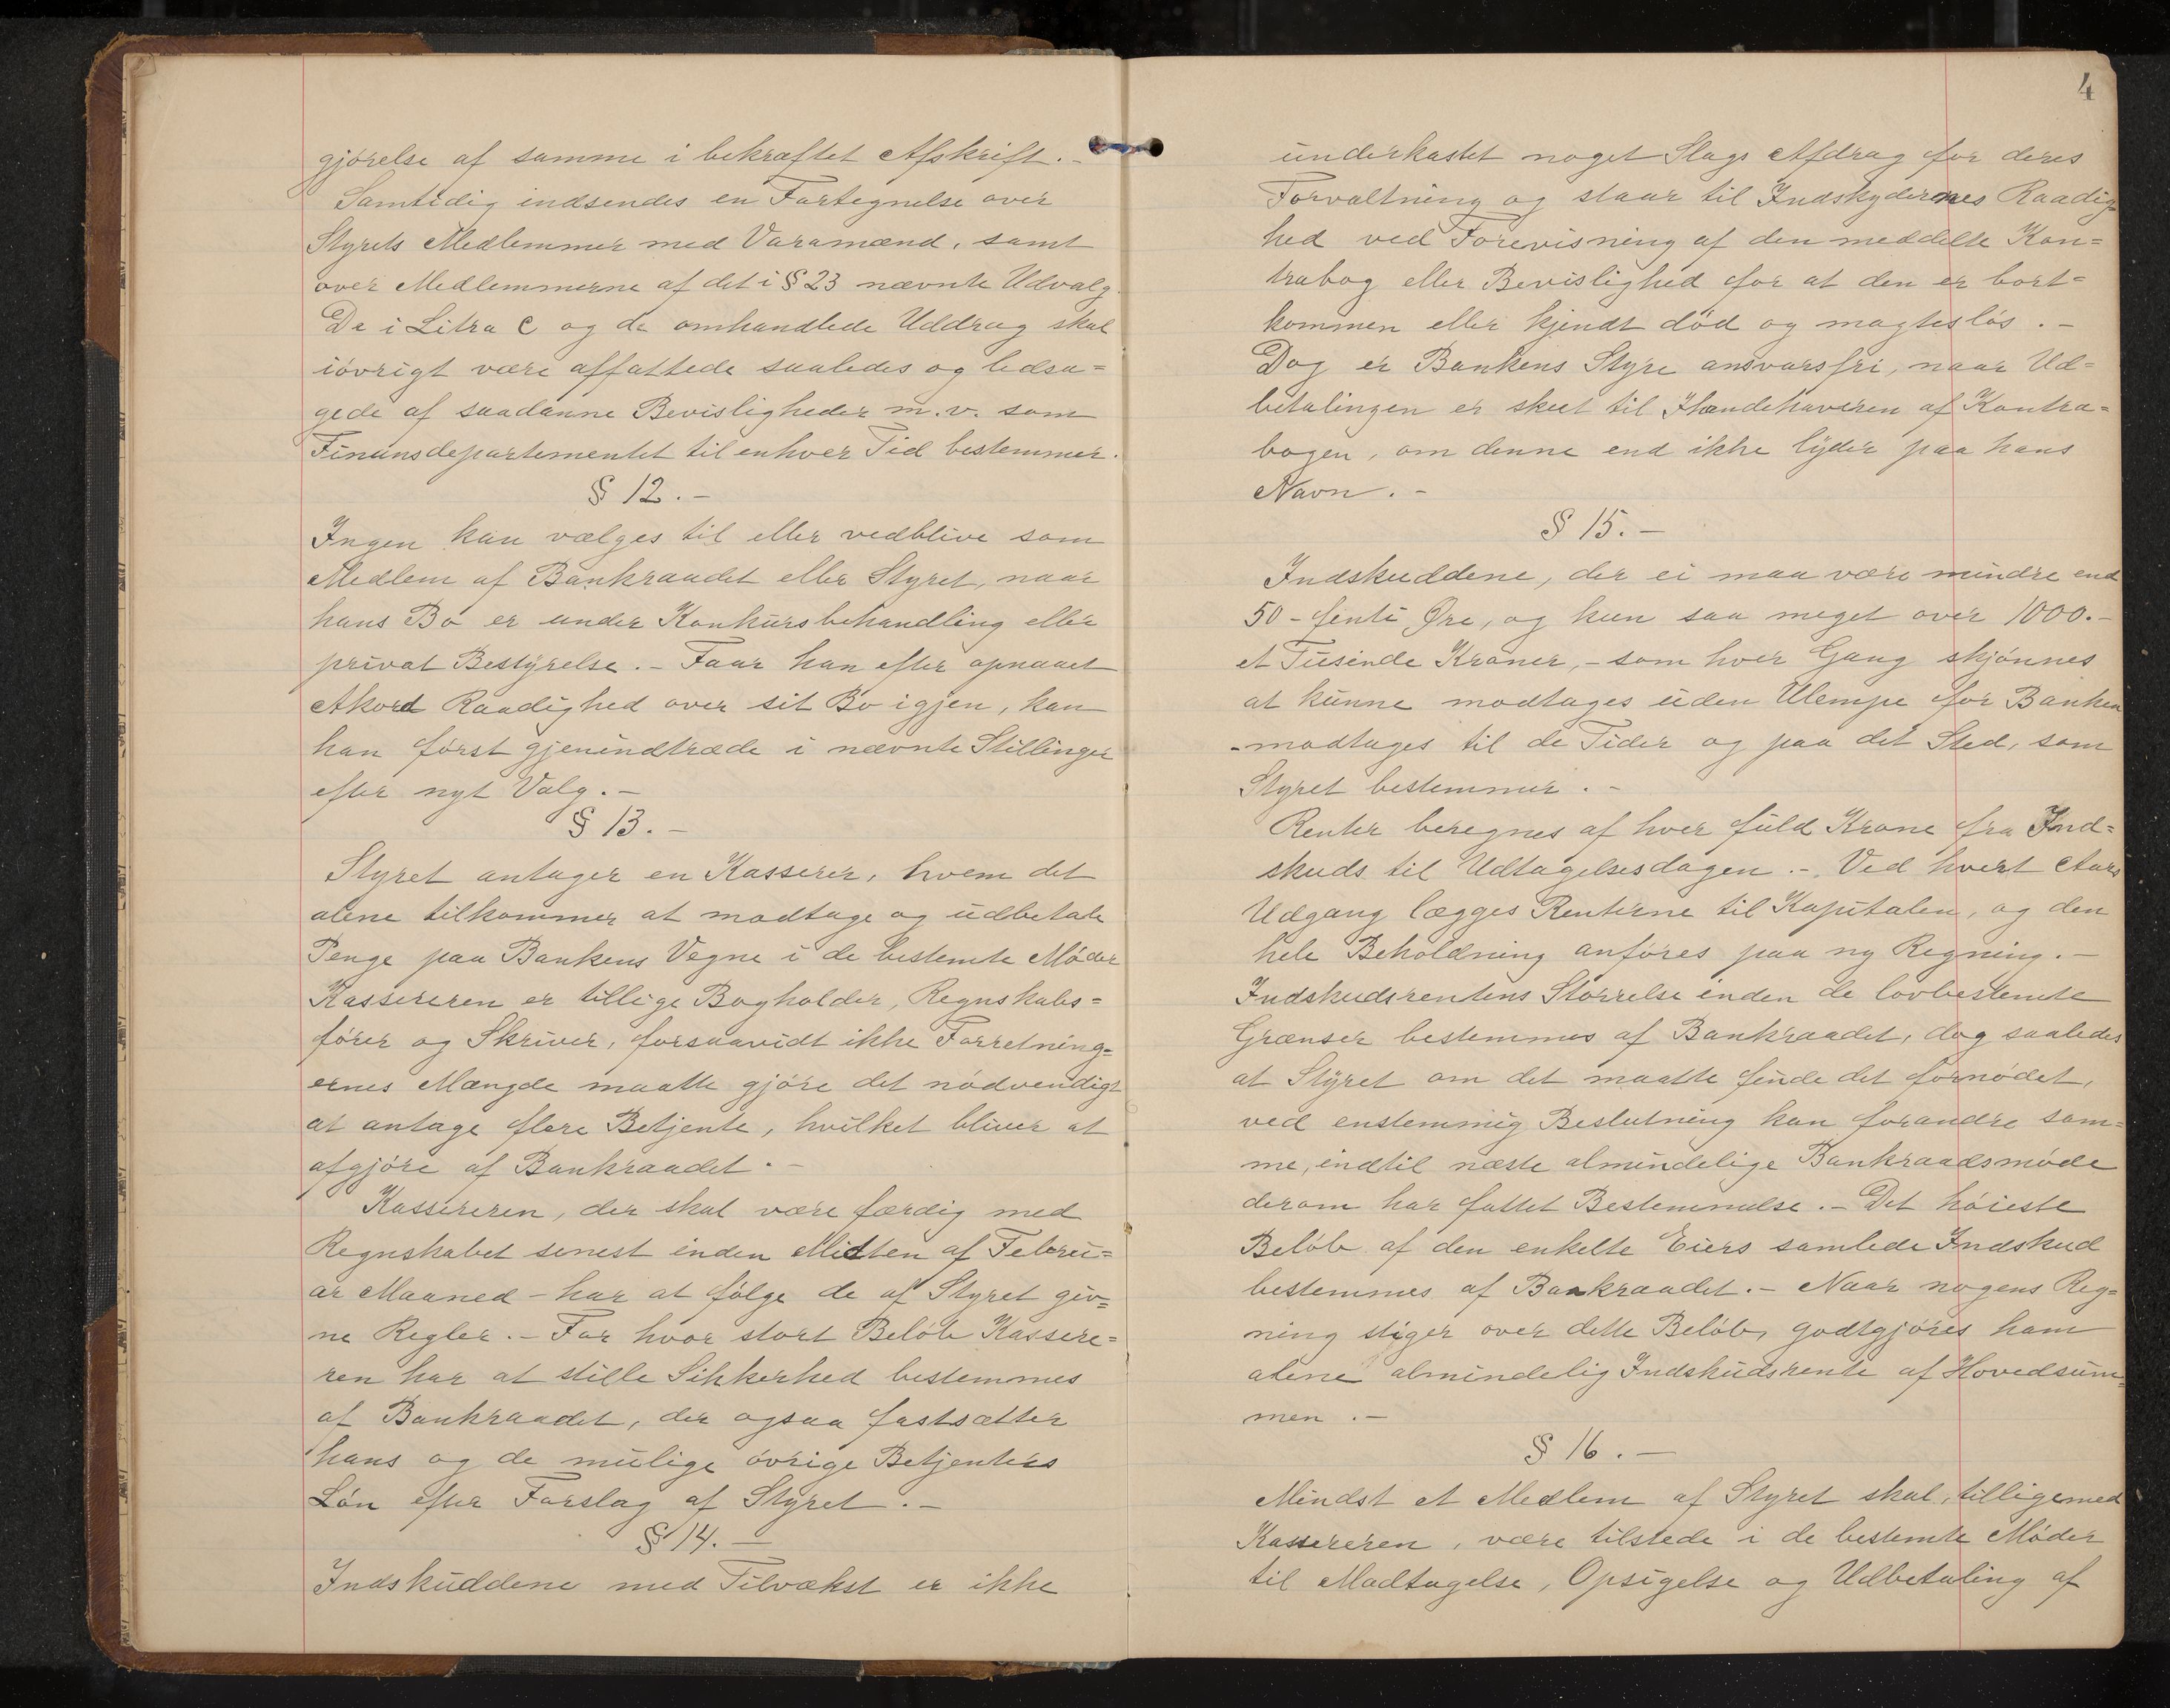 gjørelse af samme i bekræftet Afskrift.-
Samtidig indsendes en Fortegnelse over
Styrets Medlemmer med Varamænd, samt
over Medlemmerne af det i § 23 nævnte Udvalg.
De i Litra c og d omhandlede Uddrag skal
iøvrigt være affattede saaledes og ledsa=
gede af saadanne Bevisligheder m.v. som
Finansdepartementet til enhver Tid bestemmer.
§ 12.-
Ingen kan vælges til eller vedblive som
Medlem af Bankraadet eller Styret, naar
hans Bo er under Konkursbehandling eller
privat Bestyrelse.- Faar han efter opnaaet
Akord Raadighed over sit Bo igjen, kan
han først gjenindtræde i nævnte Stillinger
efter nyt Valg.-
§ 13.-
Styret antager en Kasserer, hvem det
alene tilkommer at modtage og udbetale
Penge paa Bankens Vegne i de bestemte Møder
Kassereren er tillige Bogholder, Regnskabs=
fører og Skriver, forsaavidt ikke Forretning=
ernes Mængde maatte gjøre det nødvendigt
at antage flere Betjente, hvilket bliver at
afgjøre af Bankraadet.-
Kassereren, der skal være færdig med
Regnskabet senest inden Midten af Febru=
ar Maaned - har at følge de af Styret giv=
ne Regler.- For hvor stort Beløb Kassere=
ren har at stille Sikkerhed bestemmes
af Bankraadet, der ogsaa fastsætter
hans og de mulige øvrige Betjentes
Løn efter Forslag af Styret.-
§ 14.-
Indskuddene med Tilvækst er ikke
4
underkastet noget Slags Afdrag for deres
Forvaltning og staar til Indskydernes Raadig=
hed ved Forevisning af den meddelte Kon=
trabog eller Bevislighed for at den er bort=
kommen eller kjendt død og magtesløs.-
Dog er Bankens Styre ansvarsfri, naar Ud=
betalingen er skeet til Ihændehaveren af Kontra=
bogen, om denne end ikke lyder paa hans
Navn.-
§ 15.-
Indskuddene, der ei maa være mindre end
50 - femti Øre, og kun saa meget over 1000.-
et Tusinde Kroner, - som hver Gang skjønnes
at kunne modtages uden Ulempe for Banken
- modtages til de Tider og paa det Sted, som
Styret bestemmer.-
Renter beregnes af hver fuld Krone fra Ind=
skuds til Udtagelsesdagen.-. Ved hvert Aars
Udgang lægges Renterne til Kapitalen, og den
hele Beholdning anføres paa ny Regning.-
Indskudsrentens Størrelse inden de lovbestemte
Grænser bestemmes af Bankraadet, dog saaledes
at Styret om det maatte finde det fornødet,
ved enstemmig Beslutning kan forandre sam=
me, indtil næste almindelige Bankraadsmøde
derom har fattet Bestemmelse.- Det høieste
Beløb af den enkelte Eiers samlede Indskud
bestemmes af Bankraadet.- Naar nogens Reg=
ning stiger over dette Beløb, godtgjøres ham
alene almindelig Indskudsrente af Hovedsum=
men.-
§ 16.-
Mindst et Medlem af Styret skal, tilligemed
Kassereren, være tilstede i de bestemte Møder
til Modtagelse, Opsigelse og Udbetaling af